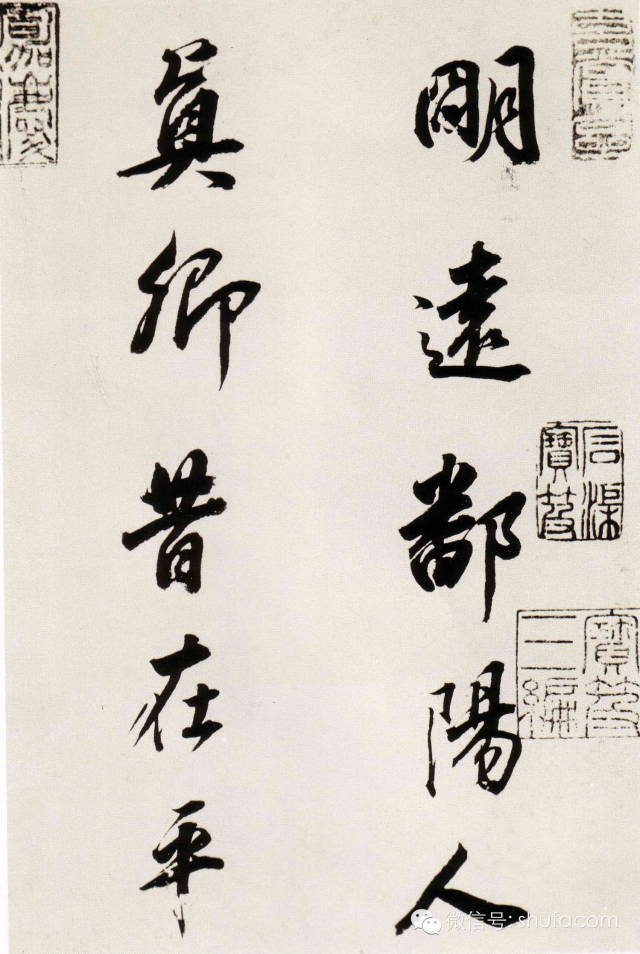 朙遠鄱陽人
眞卿昔在平
石渠寶笈
寶笈三編
微信号: shufacom